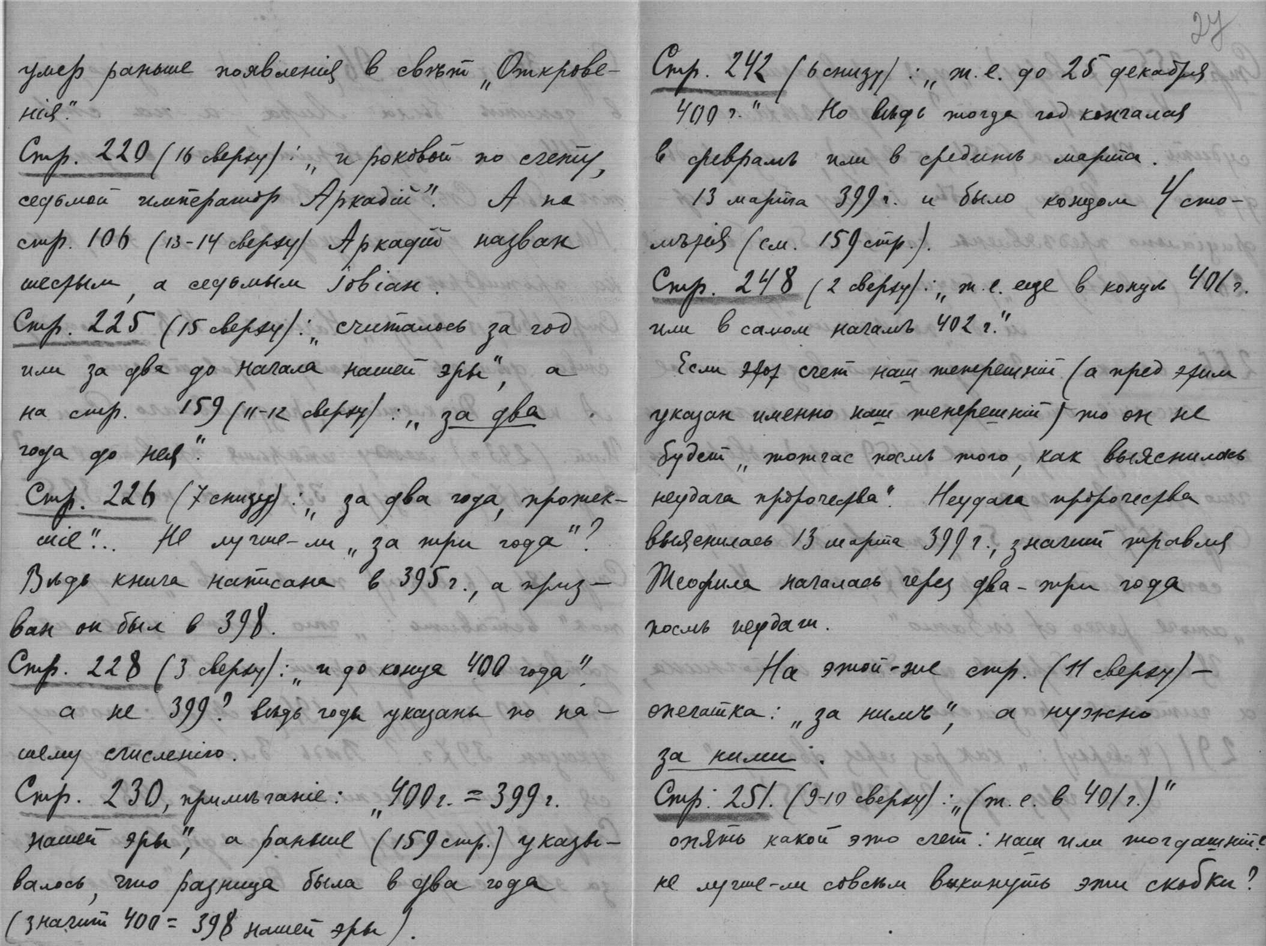 умер раньше появленія в свѣт „Открове-
нія“.
Стр. 220 (16 сверху): „и роковой по счету,
седьмой император Аркадій“. А на
стр. 106 (13-14 сверху) Аркадій назван
шестым, а седьмым Іовіан.
Стр. 225 (15 сверху): „считалось за год
или за два до начала нашей эры“, а
на стр. 159 (11-12 сверху): „за два
года до нея“.
Стр. 226 (7 снизу): „за два года, протек-
шіе“... Не лучше-ли „за три года“?
Вѣдь книга написана в 395 г., а приз-
ван он был в 398.
Стр. 228 (3 сверху): „и до конца 400 года“.
а не 399? вѣдь годы указаны по на-
шему счисленію.
Стр. 230, примѣчаніе: „400 г. = 399 г.
нашей эры“, а раньше (159 стр.) указы-
валось, что разница была в два года
(значит 400 = 398 нашей эры).
27
Стр. 242 (6 снизу): „т. е. до 25 декабря
400 г.“ Но вѣдь тогда год кончался
в февралѣ или в срединѣ марта.
13 марта 399 г. и было концом 4 сто-
лѣтія (см. 159 стр.).
Стр. 248 (2 сверху): „т. е. еще в концѣ 401 г.
или в самом началѣ 402 г.“
Если этот счет наш теперешній (а пред этим
указан именно наш теперешній) то он не
будет „тотчас послѣ того, как выяснилась
неудача пророчества“. Неудача пророчества
выяснилась 13 марта 399 г., значит травля
Теофила началась через два-три года
послѣ неудачи.
На этой-же стр. (11 сверху) —
опечатка: „за нимъ“, а нужно
за ними.
Стр. 251. (9-10 сверху): „(т. е. в 401 г.)“
опять какой это счет: наш или тогдашній?
не лучше-ли совсѣм выкинуть эти скобки?